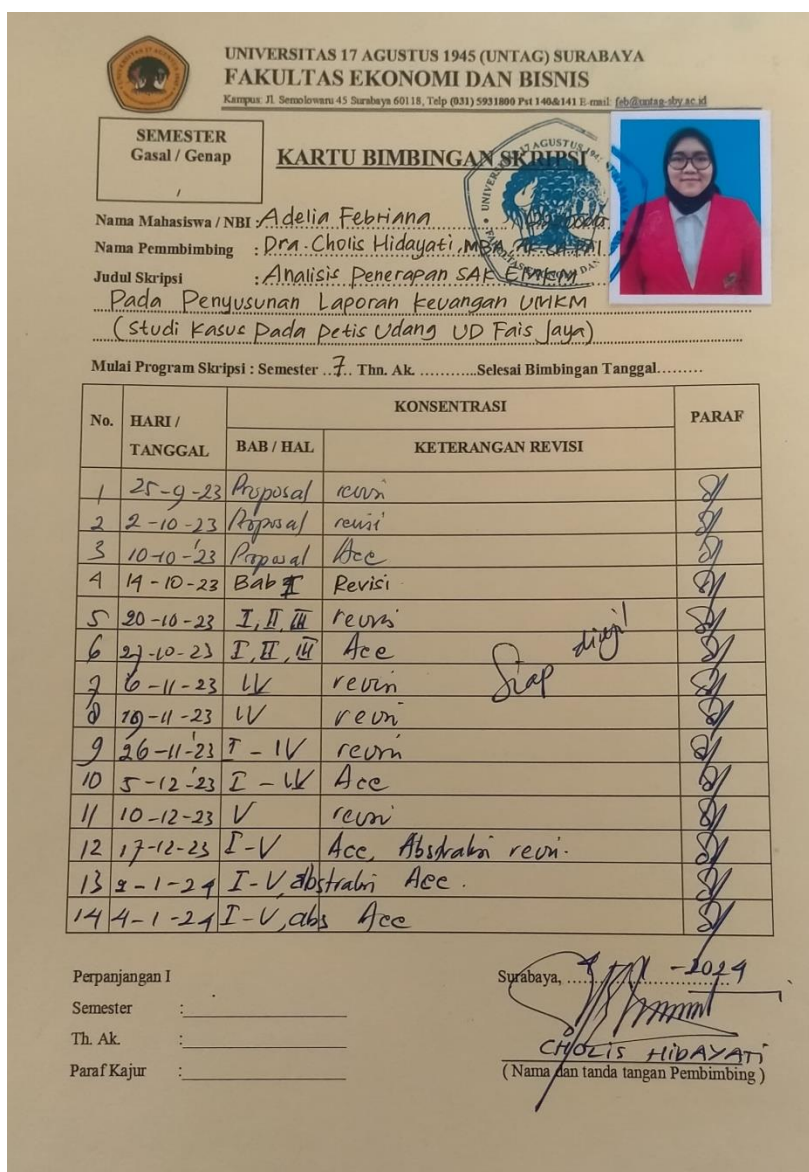 UNIVERSITAS 17 AGUSTUS 1945 (UNTAG) SURABAYA
FAKULTAS EKONOMI DAN BISNIS
Kampus: Jl. Semolowaru 45 Surabaya 60118, Telp (031) 5931800 Pst 140&141 E-mail: feb@untag-sby.ac.id
SEMESTER
Gasal / Genap
/
KARTU BIMBINGAN SKRIPSI
Nama Mahasiswa / NBI : Adelia Febriana
Nama Pemmbimbing : Dra. Cholis Hidayati, MBA,
Judul Skripsi : Analisis Penerapan SAK EMKM
Pada Penyusunan Laporan Keuangan UMKM
(Studi Kasus Pada Petis Udang UD Fais Jaya)
Mulai Program Skripsi : Semester ..7.. Thn. Ak. ............Selesai Bimbingan Tanggal.........
No. HARI / TANGGAL KONSENTRASI PARAF
BAB / HAL KETERANGAN REVISI
1 25-9-23 Proposal revisi
2 2-10-23 Proposal revisi
3 10-10-'23 Proposal Acc
4 14-10-23 Bab I Revisi
5 20-10-23 I, II, III revisi
6 27-10-23 I, II, III Acc
Siap diuji!
7 6-11-23 IV revisi
8 -11-23 IV revisi
9 26-11-'23 I - IV revisi
10 5-12-'23 I - IV Acc
11 10-12-23 V revisi
12 17-12-23 I-V Acc, Abstraksi revisi.
13 2-1-24 I-V, abstraksi Acc.
14 4-1-24 I-V, abs Acc
Perpanjangan I
Semester :
Th. Ak. :
Paraf Kajur :
Surabaya, 4 - 1 -2024
CHOLIS HIDAYATI
( Nama dan tanda tangan Pembimbing )